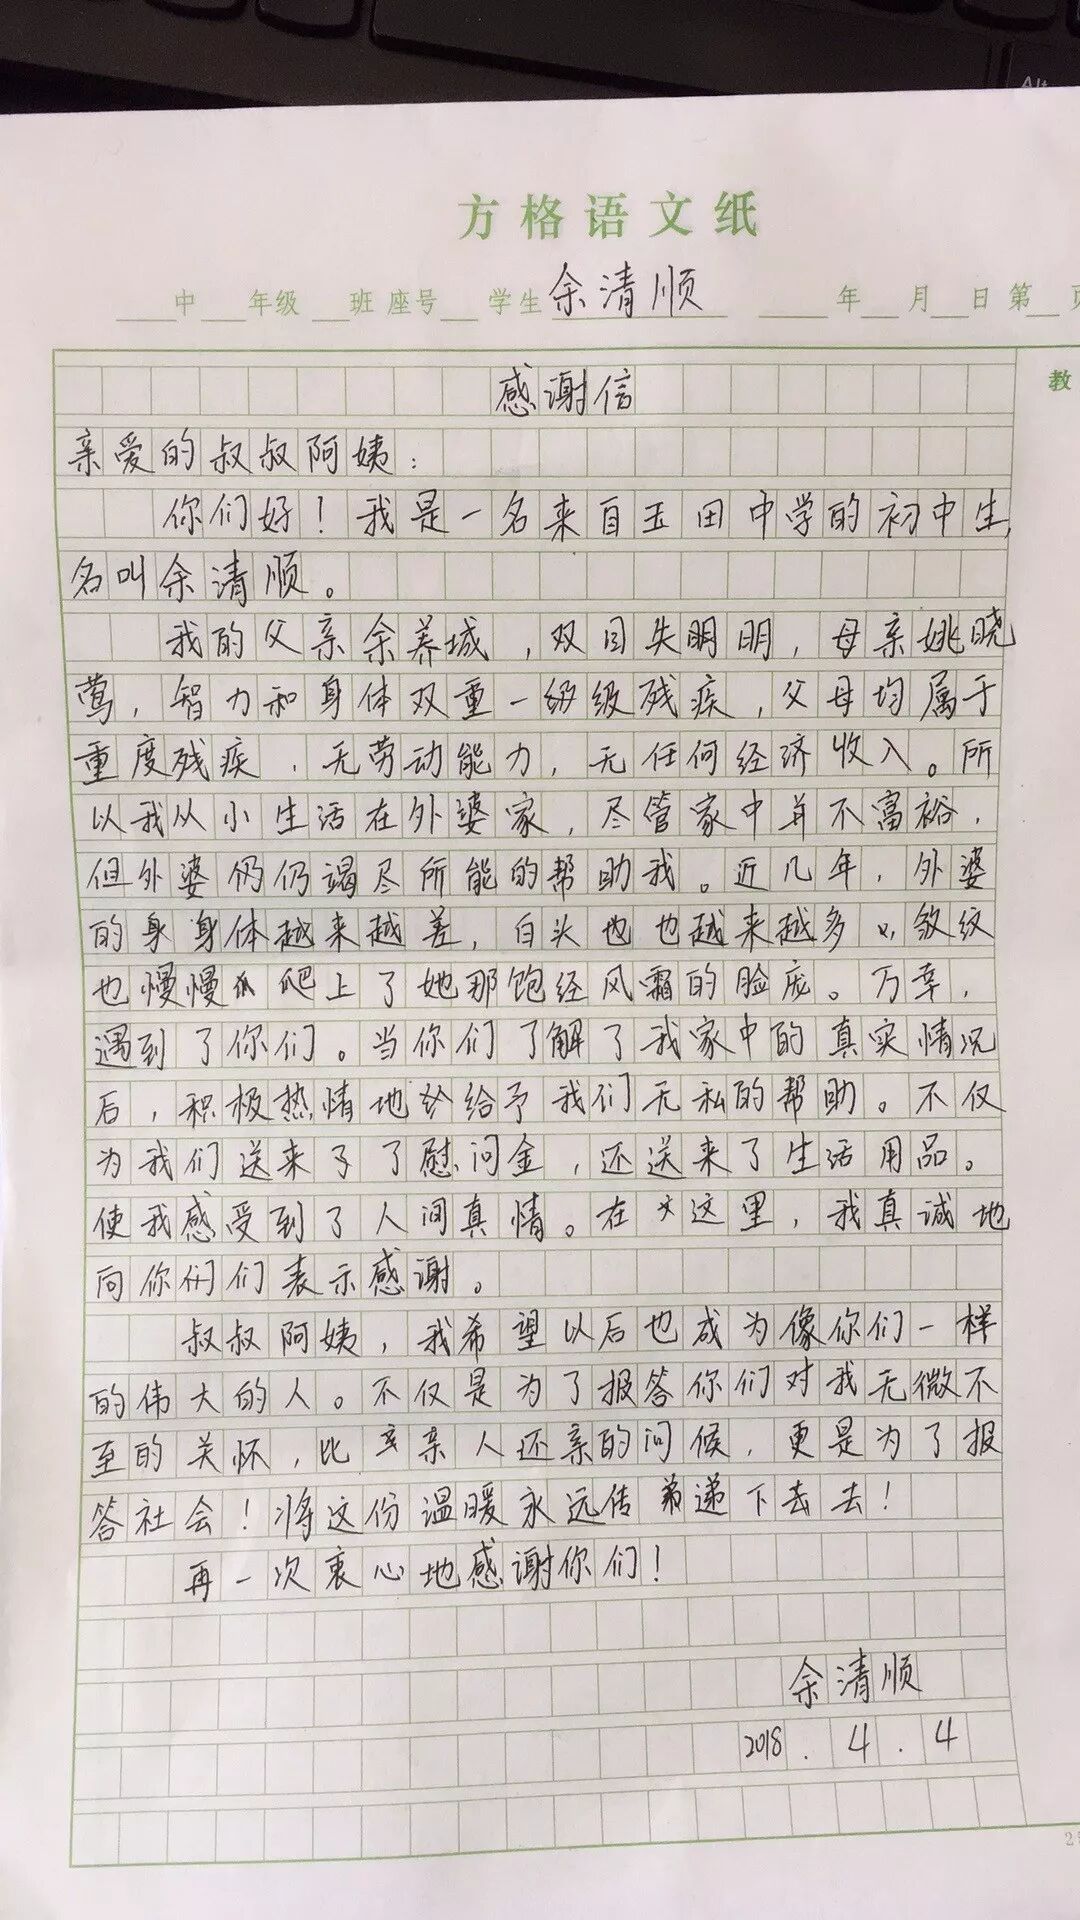 Alt
方格语文纸
中 年级 班 座号 学生 余清顺 年 月 日 第 页
教
感谢信
亲爱的叔叔阿姨：
你们好！我是一名来自玉田中学的初中生，
名叫余清顺。
我的父亲余养城，双目失明明，母亲姚晓
莺，智力和身体双重一级级残疾，父母均属于
重度残疾，无劳动能力，无任何经济收入。所
以我从小生活在外婆家，尽管家中并不富裕，
但外婆仍仍竭尽所能的帮助我。近几年，外婆
的身身体越来越差，白头也也越来越多，皱纹
也慢慢爬上了她那饱经风霜的脸庞。万幸，
遇到了你们。当你们了解了我家中的真实情况
后，积极热情地给给予我们无私的帮助。不仅
为我们送来了了慰问金，还送来了生活用品。
使我感受到了人间真情。在这里，我真诚地
向你们们表示感谢。
叔叔阿姨，我希望以后也成为像你们一样
的伟大的人。不仅是为了报答你们对我无微不
至的关怀，比亲亲人还亲的问候，更是为了报
答社会！将这份温暖永远传递下去去！
再一次衷心地感谢你们！
余清顺
2018.4.4